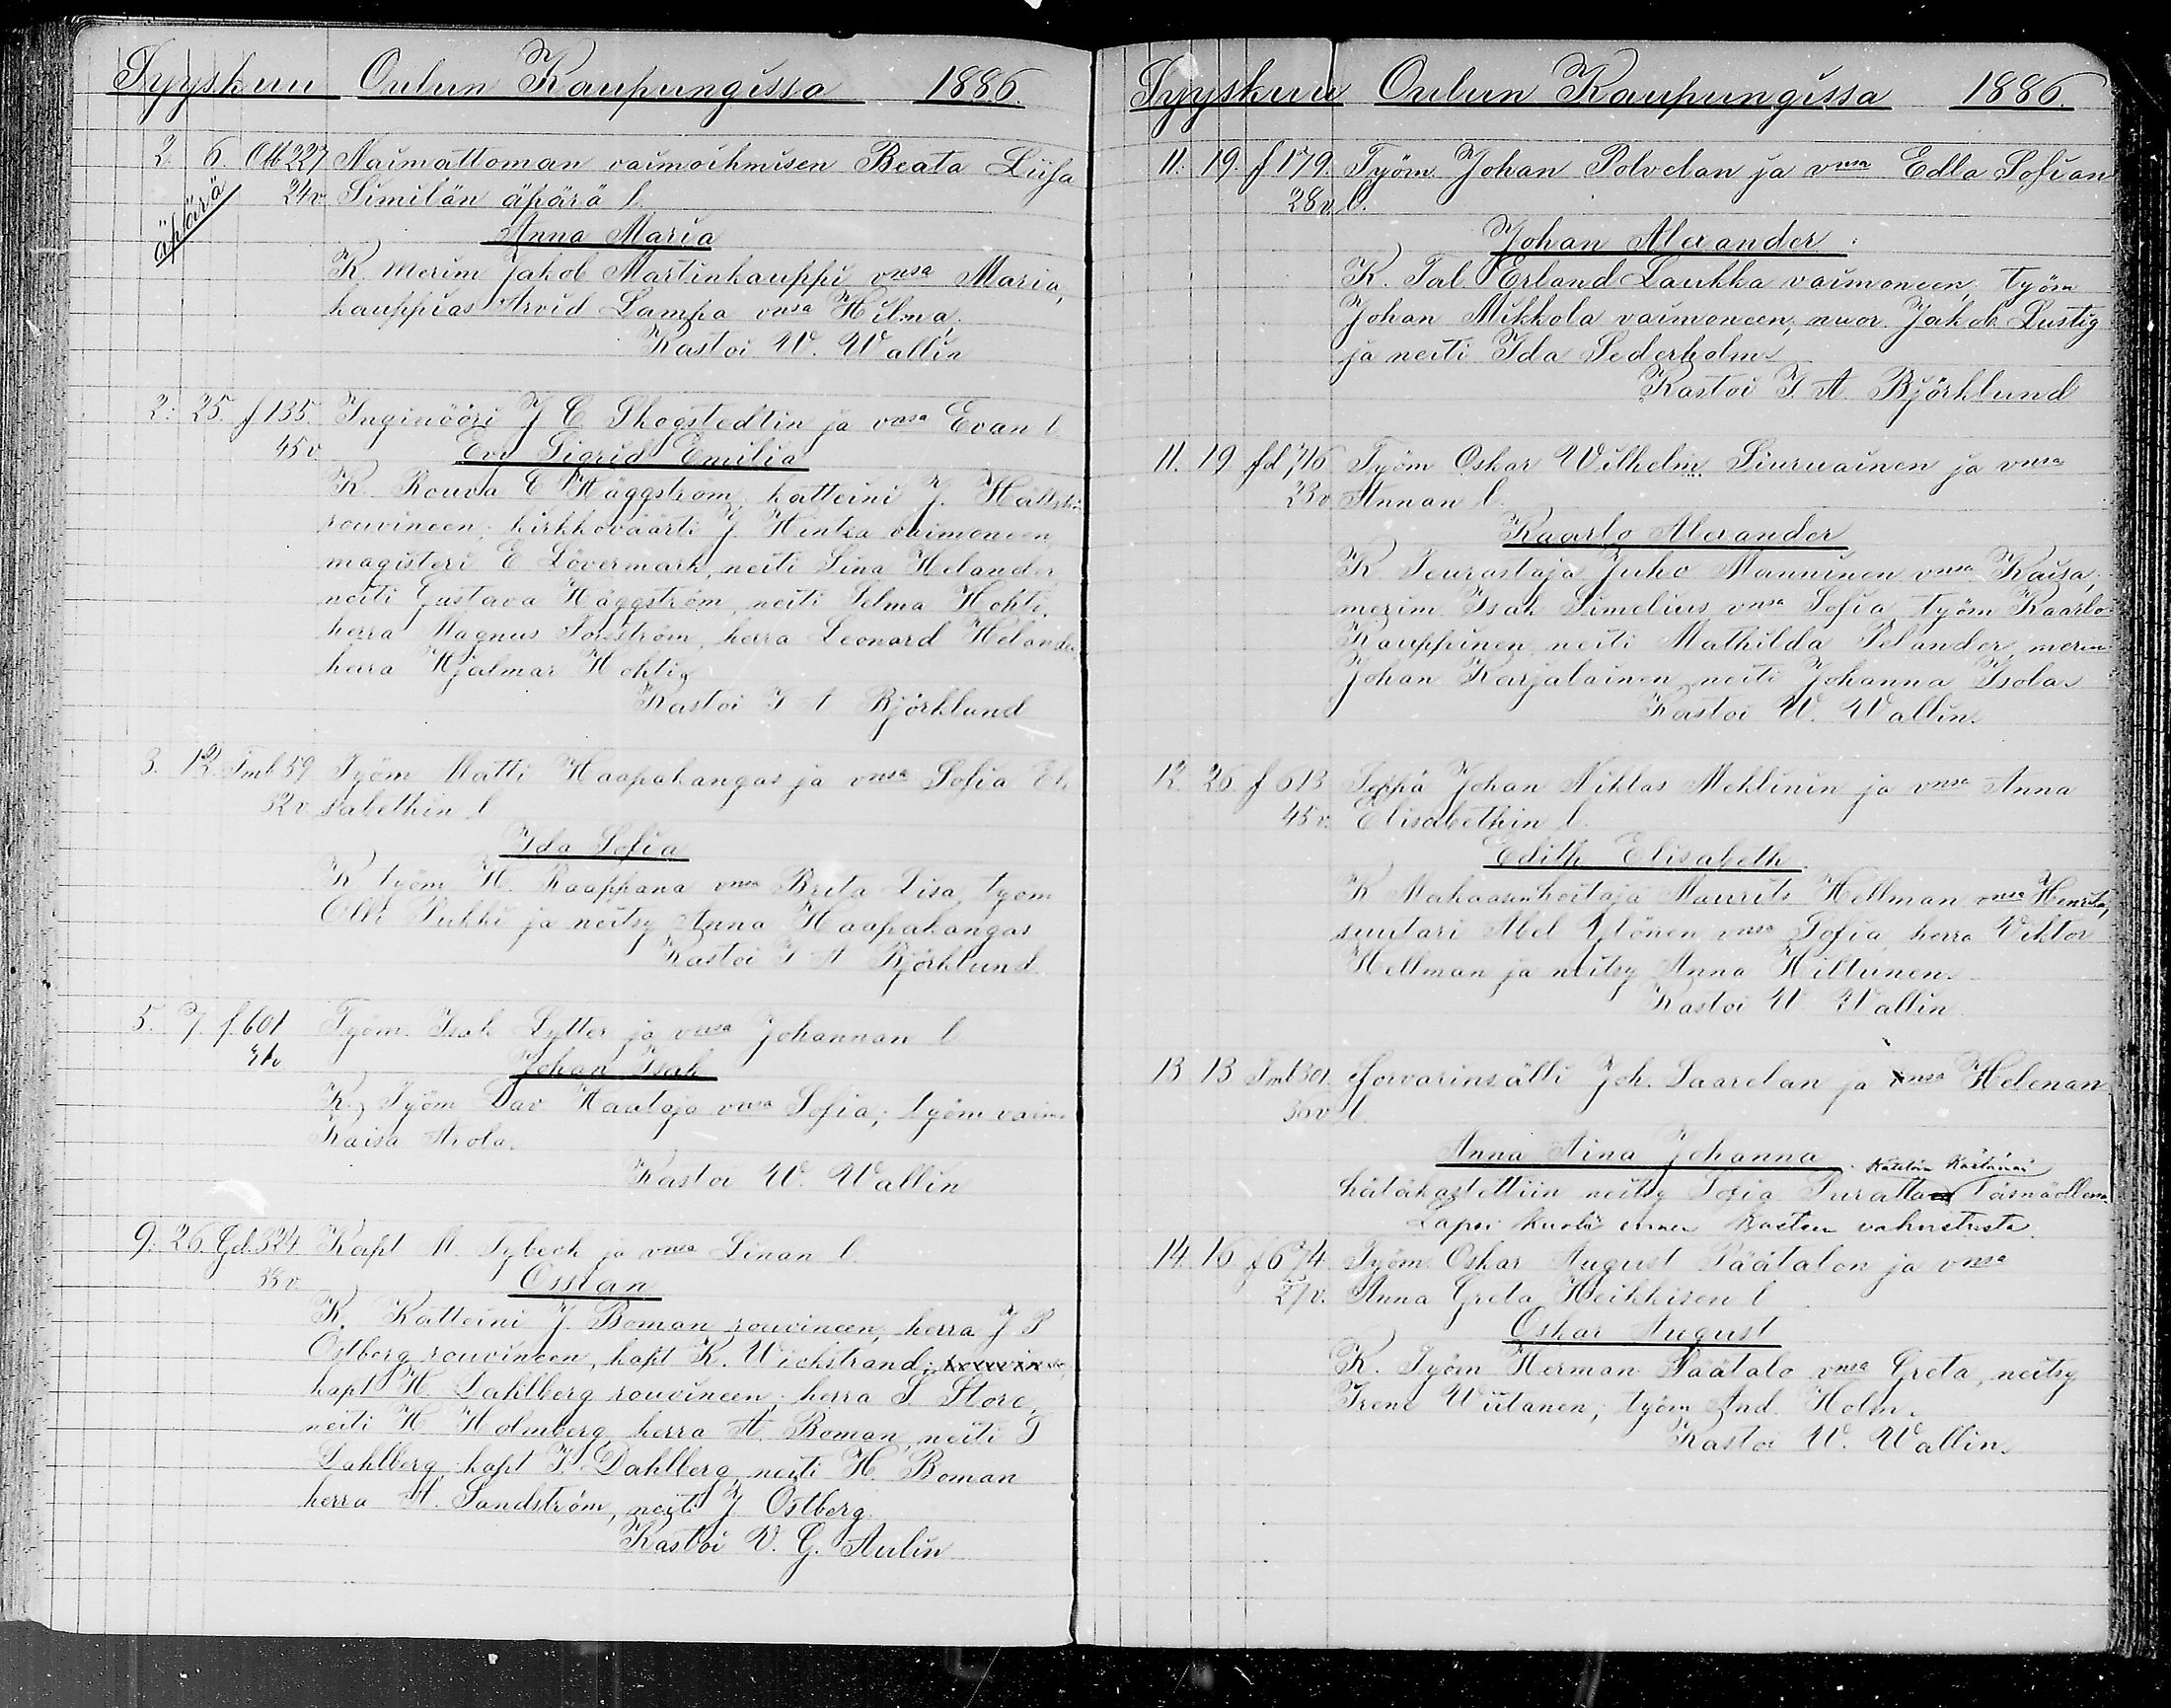 Syyskuu Oulun Kaupungissa 1886.
2. 6. Ob 227 Naimattoman vaimoihmisen Beata Liisa
äpärä
24v Similän äpärä l.
Anna Maria
K. merim Jakob Martinkauppi vnsa Maria,
kauppias Arvid Lampa vnsa Hilma.
Kastoi W. Wallin
2. 25. f 135. Inginööri J C Skogstedtin ja vnsa Evan l.
45v Eva Sigrid Emilia
K. Rouva C Häggström, katteini J.
rouvineen, kirkkoväärti J. Hintsa vaimoneen,
magisteri E. Lövermark, neiti Lina Helander,
neiti Gustava Häggström, neiti Selma Hohti,
herra Magnus herra Leonard Helander,
herra Hjalmar Hohti.
Kastoi J A Björklund
3. 12. Tmb 59 Työm Matti Haapakangas ja vnsa Sofia Eli
32v sabethin l.
Ida Sofia
K. työm H. Kaappana vnsa Brita Lisa, työm
Olli Pukki ja neitsy Anna Haapakangas
Kastoi J A Björklund.
5. 7. f. 601 Työm. Isak Lytter ja vnsa Johannan l.
31v
Johan Isak
K. Työm Dav Haataja vnsa Sofia; työm vaim.
Kaisa Arola.
Kastoi W. Wallin
9. 26. Gd. 324 Kapt M. Tybeck ja vnsa Linan l.
33v
Osstan
K. Katteini J. Boman rouvineen, herra J P
Östberg rouvineen, kapt K. Wickstrand,
kapt H. Dahlberg rouvineen, herra S. Store,
neiti H Holmberg, herra A. Boman, neiti I
Dahlberg, kapt J. Dahlberg, neiti H. Boman
herra A. Sandström, neiti J. Östberg.
Kastoi V. G. Aulin
Syyskuu Oulun Kaupungissa 1886.
11. 19. f 179. Työm Johan Polvelan ja vnsa Edla Sofian
28v. l.
Johan Alexander.
K. Tal. Erland Laukka vaimoneen, työm
Johan Mikkola vaimoneen, nuor. Jakob Lustig
ja neiti Ida Sederholm.
Kastoi J. A. Björklund
11. 19 fd 716 Työm Oskar Wilhelm Siuruainen ja vnsa
23v Annan l.
Kaarlo Alexander
K. Teurastaja Juho Manninen vnsa Kaisa,
merim Isak Simelius vnsa Sofia, työm Kaarlo
Kauppinen, neiti Mathilda Pelander, merim
Johan Karjalainen, neiti Johanna Isola.
Kastoi W. Wallin.
12. 26. f 613 Seppä Johan Niklas Mehlinin ja vnsa Anna
45v. Elisabethin l.
Edith Elisabeth.
K. Makasunhoitaja Maurits Hellman vnsa Henrita,
suutari Abel Ylönen vnsa Sofia, herra Viktor
Hellman ja neitsy Anna Hiltunen.
Kastoi W. Wallin.
13 13 Tmb 301. Forvarinsälli Joh. Saarelan ja vnsa Helenan
36v l.
Anna Aina Johanna
Kätilön
hätäkastettiin neitsy Sofia läsnäollessa
Lapsi kuoli ennen kasteen vahvistusta.
14. 16 f 674. Työm Oskar August Päätalon ja vnsa
27v. Anna Greta Heikkisen l.
Oskar August
K. Työm Herman Päätalo vnsa Greta, neitsy
Irene Wiitanen, työm And. Holm.
Kastoi W. Wallin.